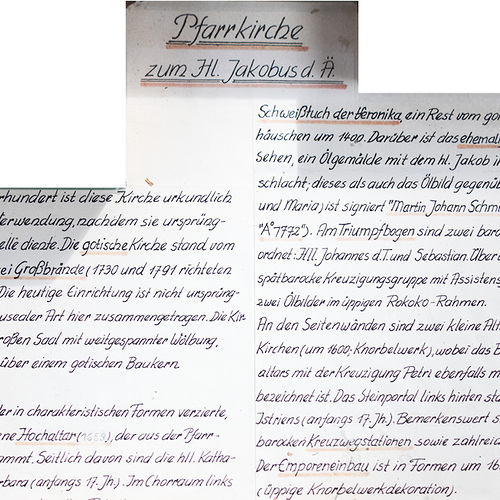 Pfarrkirche
zum Hl. Jakobus d. Ä.
rhundert ist diese Kirche urkundlich
erwendung, nachdem sie ursprüng-
elle diente. Die gotische Kirche stand vom
ei Großbrände (1730 und 1791 richteten
Die heutige Einrichtung ist nicht ursprüng-
usealer Art hier zusammengetragen. Die Kir-
roßen Saal mit weitgespannter Wölbung,
über einem gotischen Baukern.
er in charakteristischen Formen verzierte,
ene Hochaltar ( ), der aus der Pfarr-
ammt. Seitlich davon sind die hll. Katha-
rbara (anfangs 17. Jh.). Im Chorraum links
Schweißtuch der Veronika, ein Rest vom go
häuschen um 1400. Darüber ist das ehemal
sehen, ein Ölgemälde mit dem hl. Jakob i
schlacht; dieses als auch das Ölbild gegenü
und Maria) ist signiert "Martin Johann Schmi
"A° 1772"). Am Triumpfbogen sind zwei baro
ordnet: Hll. Johannes d.T. und Sebastian. Über d
spätbarocke Kreuzigungsgruppe mit Assistens
zwei Ölbilder im üppigen Rokoko-Rahmen.
An den Seitenwänden sind zwei kleine Alt
Kirchen (um 1600; Knorbelwerk), wobei das B
altars mit der Kreuzigung Petri ebenfalls m
bezeichnet ist. Das Steinportal links hinten sta
Istriens (anfangs 17. Jh.). Bemerkenswert s
barocken Kreuzwegstationen, sowie zahlreic
Der Emporeneinbau ist in Formen um 16
(üppige Knorbelwerkdekoration).